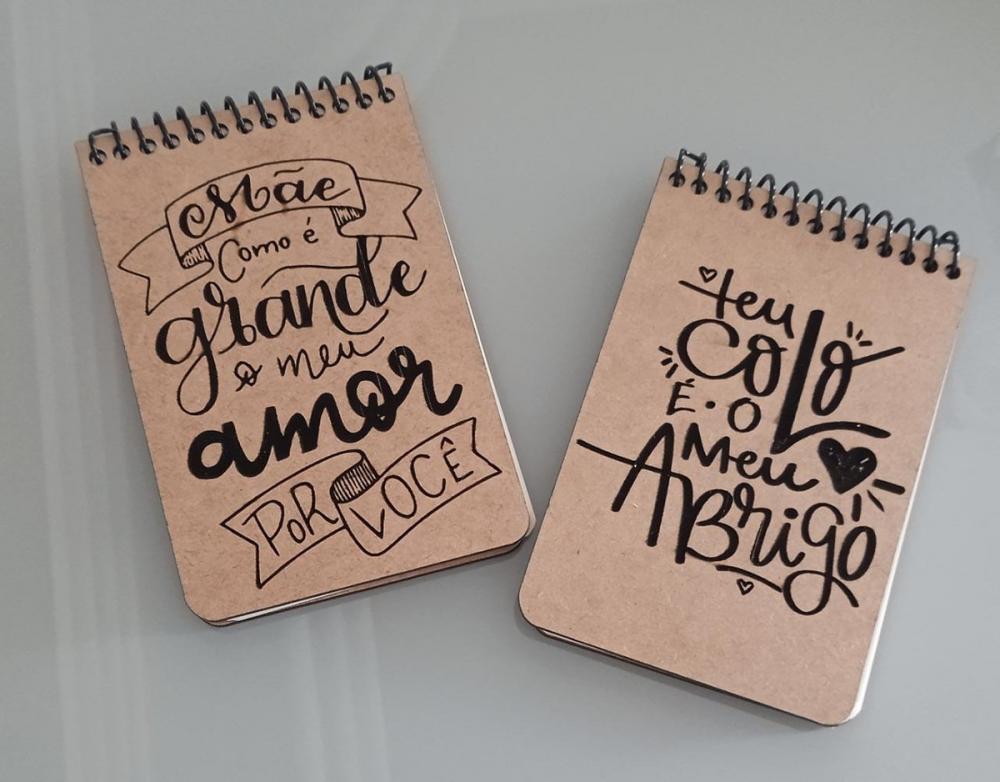 Mãe
Como é
grande
o meu
amor
POR VOCÊ
teu
COLO
É • O
Meu
ABrigo